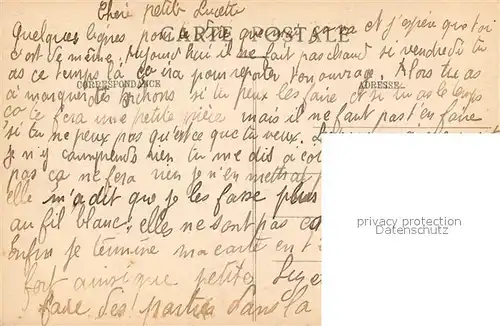 Chère petite Lucette
CARTE POSTALE
Quelques lignes pour te dire que ça va et j'espère que toi
c'est de même. Aujourd'hui il ne fait pas chaud si vendredi tu
as ce temps là ça ira pour reporter ton ouvrage. Alors tu as
CORRESPONDANCE
ADRESSE
à marquer des bichons si tu peux les faire et si tu as le temps
ça te fera une petite pièce mais il ne faut pas t'en faire
si tu ne peux pas qu'est ce que tu veux.
je n'y comprends rien tu me dis à col
pas ça ne fera rien je n'en mettrai
elle m'a dit que je les fasse plus
au fil blanc, elles ne sont pas
Enfin je termine ma carte en t
fort ainsi que petite
faire des parties dans la
privacy protection
Datenschutz